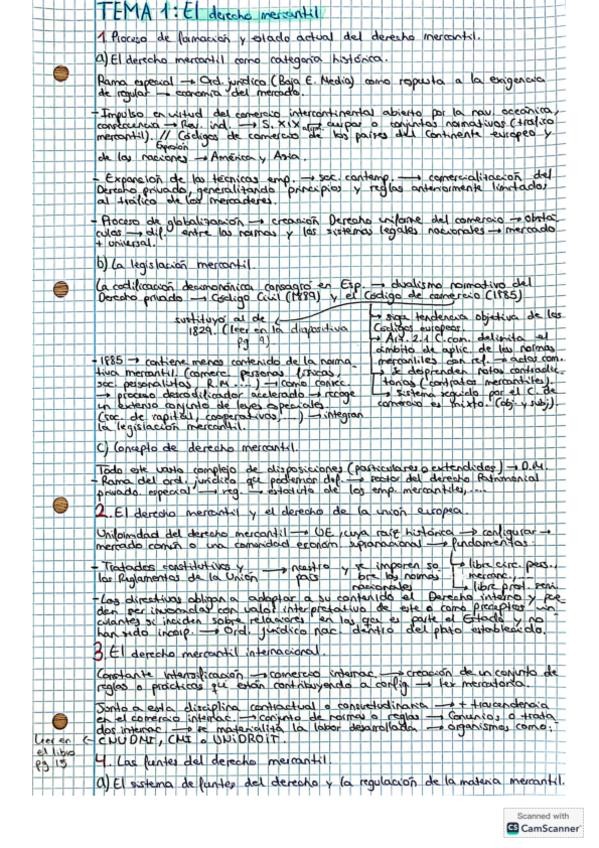 TEMA 1: El derecho mercantil
1. Proceso de formación y estado actual del derecho mercantil.
a) El derecho mercantil como categoría histórica.
Rama especial → Ord. jurídico (Baja E. Media) como repuesta a la exigencia
de regular → economía del mercado.
- Impulso en virtud del comercio intercontinental abierto por la nav. oceánica,
consecuencia → Rev. ind. → S. XIX → cuerpos o conjuntos normativos (tráfico
mercantil). // Códigos de comercio de los países del continente europeo y
Expansión
de las naciones → América y Asia.
- Expansión de las técnicas emp. → soc. contemp. → comercialización del
Derecho privado, generalitando principios y reglas anteriormente limitados
al tráfico de los mercaderes.
- Proceso de globalización → creación Derecho uniforme del comercio → obstá
culos → dif. entre las normas y los sistemas legales nacionales → mercado
+ universal.
b) La legislación mercantil.
La codificación decimonónica consagró en Esp. → dualismo normativo del
Derecho privado → Código Civil (1889) y el Código de comercio (1885)
sustituyó al de
1829. (leer en la diapositiva
pg 9)
→ sigue tendencia objetiva de los
Códigos europeos.
→ Art. 2.1 C.com. delimita el
ámbito de aplic. de las normas
mercantiles con ref. → actos com.
→ se desprenden notas contradic
torias (contratos mercantiles).
→ Sistema seguido por el C. de
comercio es mixto. (obj. y subj)
- 1885 → contiene menos contenido de la norma
tiva mercantil. (comerc. personas físicas,
soc. personalistas, R.M....) → como consec.
→ proceso descodificador acelerado → recoge
un extenso conjunto de leyes especiales
(soc. de capital, cooperativas,...) → integran
la legislación mercantil.
c) Concepto de derecho mercantil.
Todo este vasto complejo de disposiciones (particulares o extendidos) → D.M.
- Rama del ord. jurídico que podemos def. → sector del Derecho Patrimonial
privado especial → reg. → estatuto de los emp. mercantiles,...
2. El derecho mercantil y el derecho de la unión europea.
Uniformidad del derecho mercantil → UE, cuya raíz histórica → configurar →
mercado común o una comunidad económ. supranacional → fundamentos:
- Tratados constitutivos y
los Reglamentos de la Unión
→ nuestro
país
y se imponen so
bre las normas
nacionales
→ libre circ. pers.,
mercanc.,...
→ libre prest. servi.
- Las directivas obligan a adaptar a su contenido el Derecho interno y pue
den ser invocadas con valor interpretativo de este o como preceptos vin
culantes si inciden sobre relaciones en las que es parte el Estado y no
han sido incorp. → Ord. jurídico nac. dentro del plazo establecido.
3. El derecho mercantil internacional.
Constante intensificación → comercio internac. → creación de un conjunto de
reglas o prácticas que están contribuyendo a config → lex mercatoria.
Junto a esta disciplina contractual o consuetudinaria → + trascendencia
en el comercio internac. → conjunto de normas o reglas → Convenios o trata
dos internac → se materializa la labor desarrollada → organismos como:
← CNUDMI, CMI o UNIDROIT.
Leer en
el libro
pg 15
4. Las fuentes del derecho mercantil.
a) El sistema de fuentes del derecho y la regulación de la materia mercantil.
Scanned with
CS CamScanner